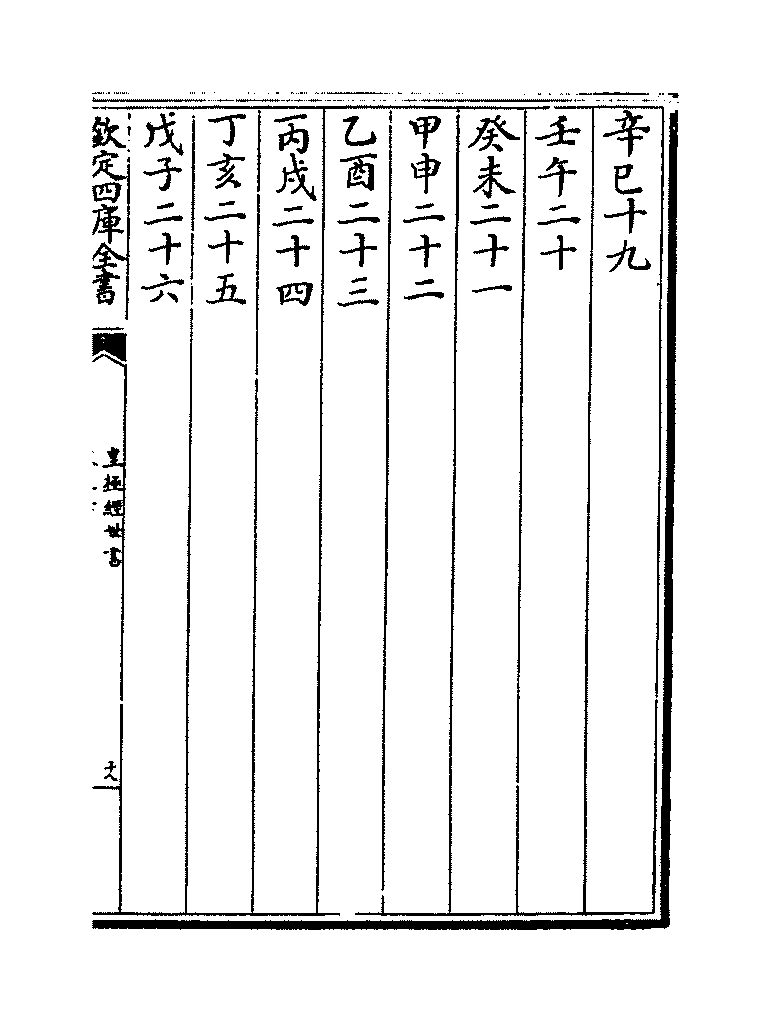 辛巳十九
壬午二十
癸未二十一
甲申二十二
乙酉二十三
丙戌二十四
丁亥二十五
戊子二十六
欽定四庫全書
皇極經世書
十八